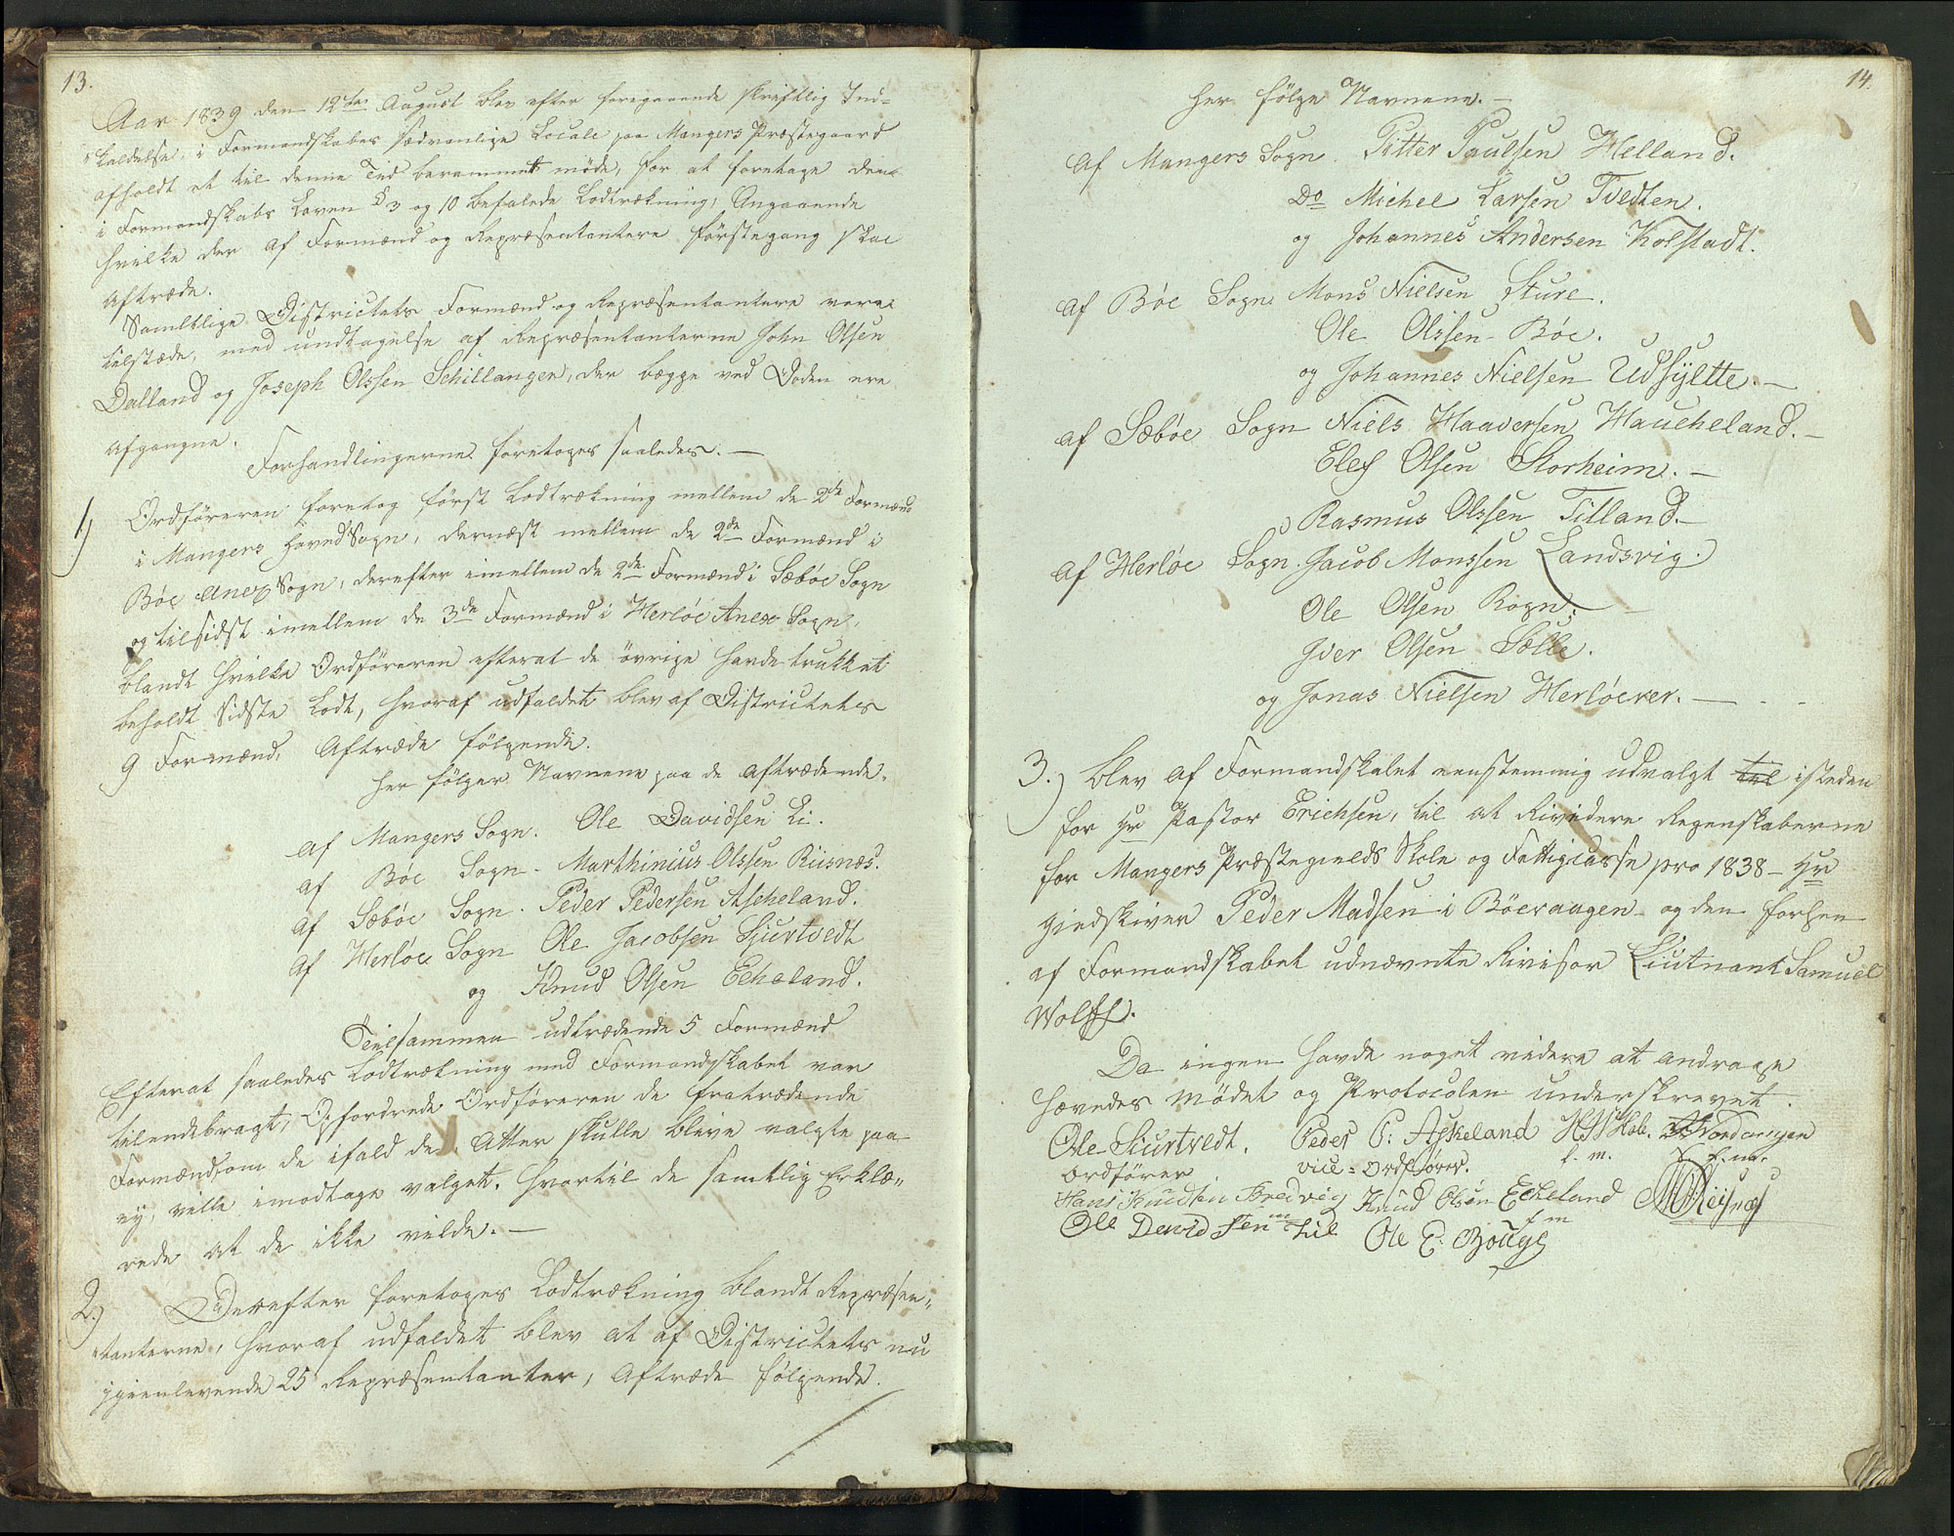 13.
Aar 1839 den 12te August blev efter foregaaende skriftlig Ind-
kaldelse, i Formandskabets sædvanlige Locale paa Mangers Præstegaard
afholdt et til denne Tid berammet møde, for at foretage den
i Formandskabs Loven § 3 og 10 befalede Lodtrækning, Angaaende
hvilke der af Formænd og Repræsentantere førstegang skal
Aftræde.
Samtlige Districtets Formænd og Repræsentantere vare
tilstæde, med undtagelse af Repræsentanterne John Olsen
Dalland og Joseph Olssen Schillanger, der begge ved Døden ere
afgangne.
Forhandlingerne foretoges saaledes. —
1) Ordføreren foretog først Lodtrækning mellem de 2de Formænd
i Mangers HovedSogn, dernæst mellem de 2de Formænd i
Bøe Anex Sogn, derefter imellem de 2de Formænd i Sæbøe Sogn
og tilsidst imellem de 3de Formænd i Herløe Anex Sogn,
blandt hvilke Ordføreren efterat de øvrige havde trukket
beholdt sidste Lodt, hvoraf udfaldet blev af Districtets
9 Formænd, Aftræde følgende.
Her følger Navnene paa de aftrædende.
Af Mangers Sogn. Ole Davidsen Li.
af Bøe Sogn - Marthinius Olssen Riisnæs.
af Sæbøe Sogn. Peder Pedersen Ascheland.
Af Herløe Sogn Ole Jacobsen Sjurtvedt
og Knud Olsen Echeland.
Tilsammen udtrædende 5 Formænd
Efterat saaledes Lodtrækning med Formandskabet var
tilendebragt, Opfordrede Ordføreren de fratrædende
Formænd, om de ifald de Atter skulle blive valgte paa
ny, ville imodtage valget. hvortil de samtlig Erklæ-
rede at de ikke vilde. —
2.) Derefter foretoges Lodtrækning blandt Repræsen-
tanterne, hvoraf udfaldet blev at af Districtets nu
igienlevende 25 Repræsentanter, Aftræde følgende.
14.
Her følge Navnene. —
af Mangers Sogn. Pitter Paulsen Helland.
Do Michel Larsen Tvedten.
og Johannes Andersen Kolstadt.
af Bøe Sogn Mons Nielsen Sture.
Ole Olssen Bøe.
og Johannes Nielsen Udsyltte. —
af Sæbøe Sogn Niels Haaversen Haucheland. —
Elef Olsen Storheim. —
Rasmus Olssen Tilland. —
af Herløe Sogn. Jacob Monssen Landsvig.
Ole Olsen Rogn. —
Iver Olsen Sælle.
og Jonas Nielsen Herløever. —
3.) blev af Formandskabet eenstemmig udvalgt til isteden
for Hr Pastor Erichsen, til at Rividere Regenskaberne
for Mangers Præstegields Skole og Fattigcasse pro 1838 – Hr
Giedskiver Peder Madsen i Böevaagen og den forhen
af Formandskabet udnævnte Rivisor Liutnant Samuel
Wolff.
Da ingen havde noget videre at andrage
hævedes mødet og Protocolen underskrevet.
Ole Siurtvedt. Peder P: Askeland
Ordfører vice-Ordfører. f. m. f. m.
Hans Knudsen Bredvig Knud Olsen Echeland
f m
Ole David sen